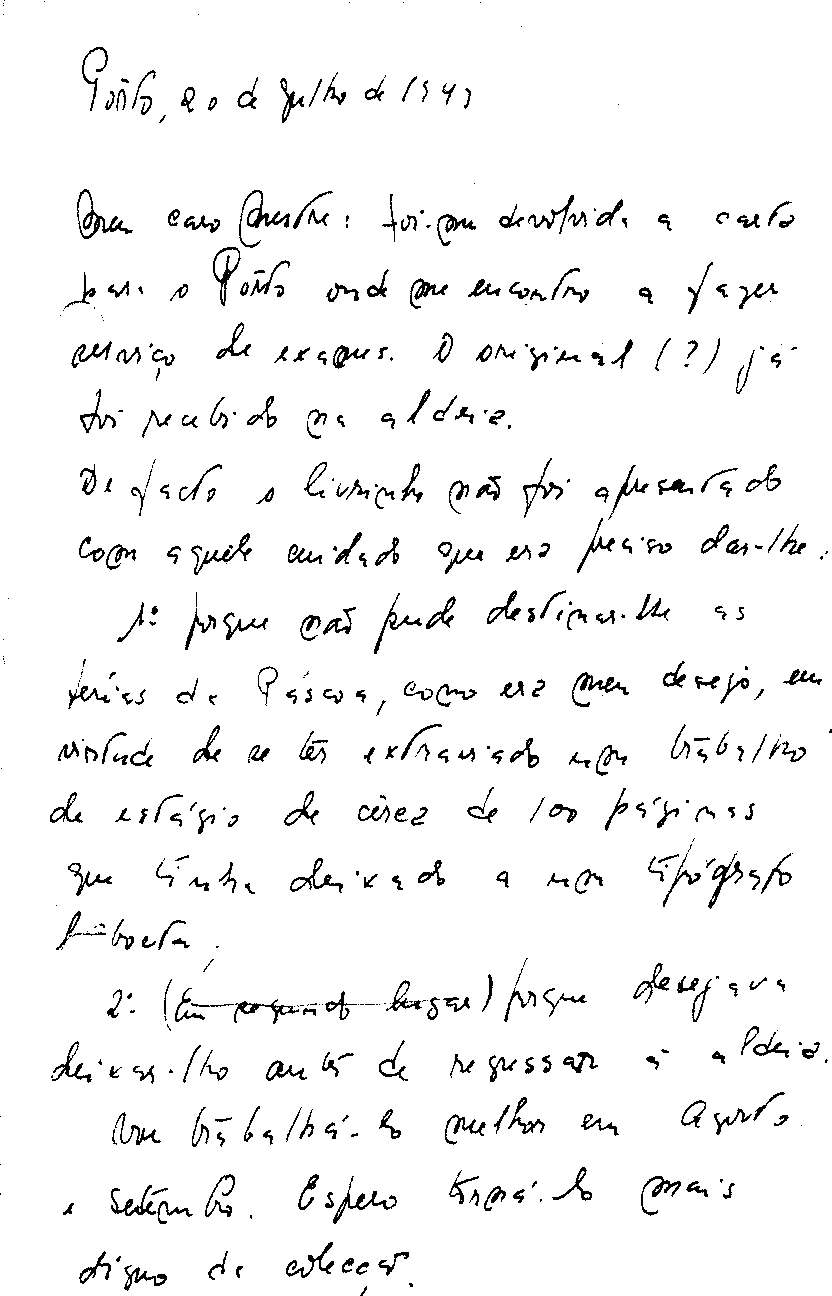 Pôrto, 20 de Julho de 1947
Meu caro Mestre: foi-me devolvida a carta
para o Pôrto onde me encontro a fazer
serviço de exames. O original (?) já
foi recebido na aldeia.
De facto o livrinho não foi apresentado
com aquele cuidado que era preciso dar-lhe.
1º porque não pude destinar-lhe as
férias da Páscoa, como era meu desejo, em
virtude de se ter extraviado um trabalho
de estágio de cêrca de 100 páginas
que tinha deixado a um tipógrafo
2º (Em segundo lugar) porque desejava
deixar-lho antes de regressar à aldeia.
Vou trabalhá-lo melhor em Agosto
e Setembro. Espero torná-lo mais
digno da colecção.